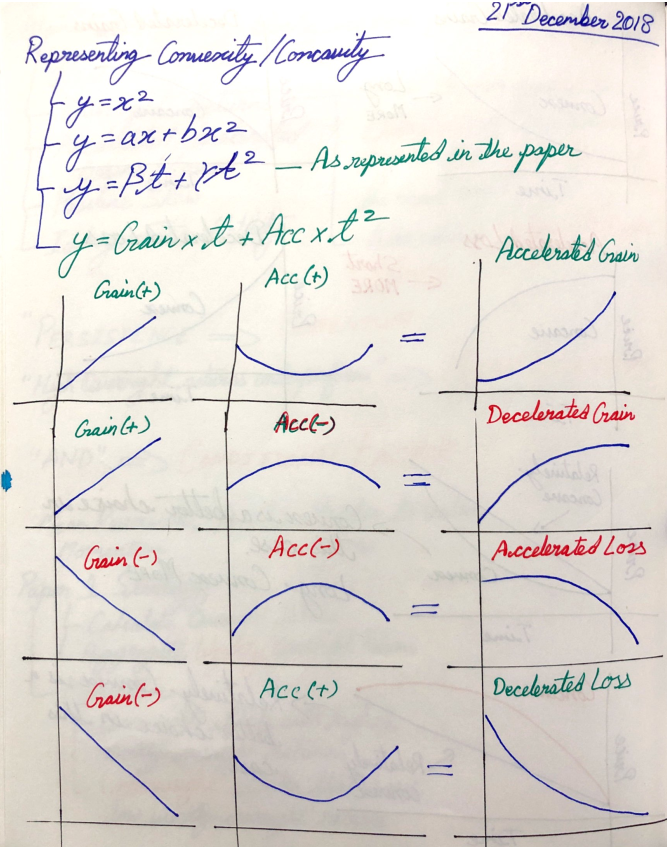 21st December 2018
Representing Convexity/Concavity
y = x²
y = ax + bx²
y = βt + γt² — As represented in the paper
y = Gain × t + Acc × t²
Gain(+) Acc(+) = Accelerated Gain
Gain(+) Acc(-) = Decelerated Gain
Gain(-) Acc(-) = Accelerated Loss
Gain(-) Acc(+) = Decelerated Loss